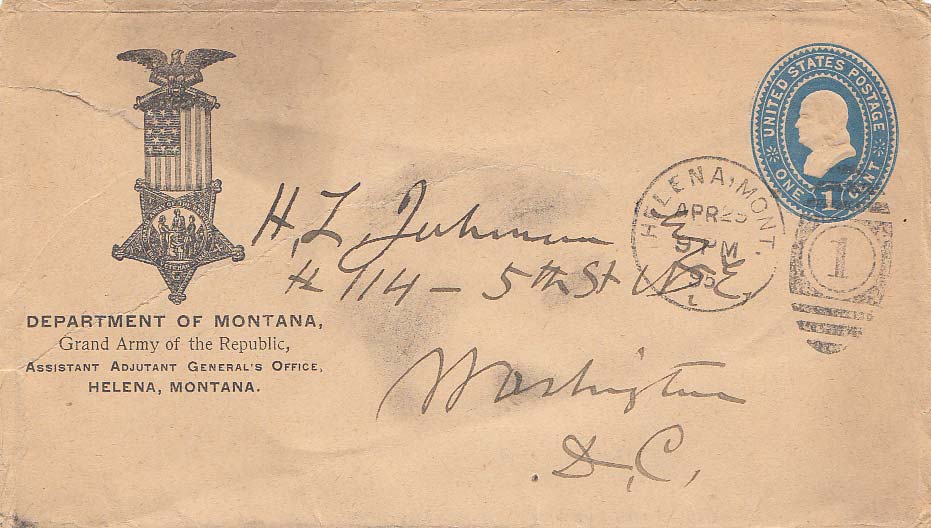 DEPARTMENT OF MONTANA,
Grand Army of the Republic,
ASSISTANT ADJUTANT GENERAL'S OFFICE,
HELENA, MONTANA.
UNITED STATES POSTAGE
ONE CENT
1
HELENA, MONT.
APR 25
PM
1
H. L. Johnson
# 114 – 5th St
Washington
D.C.